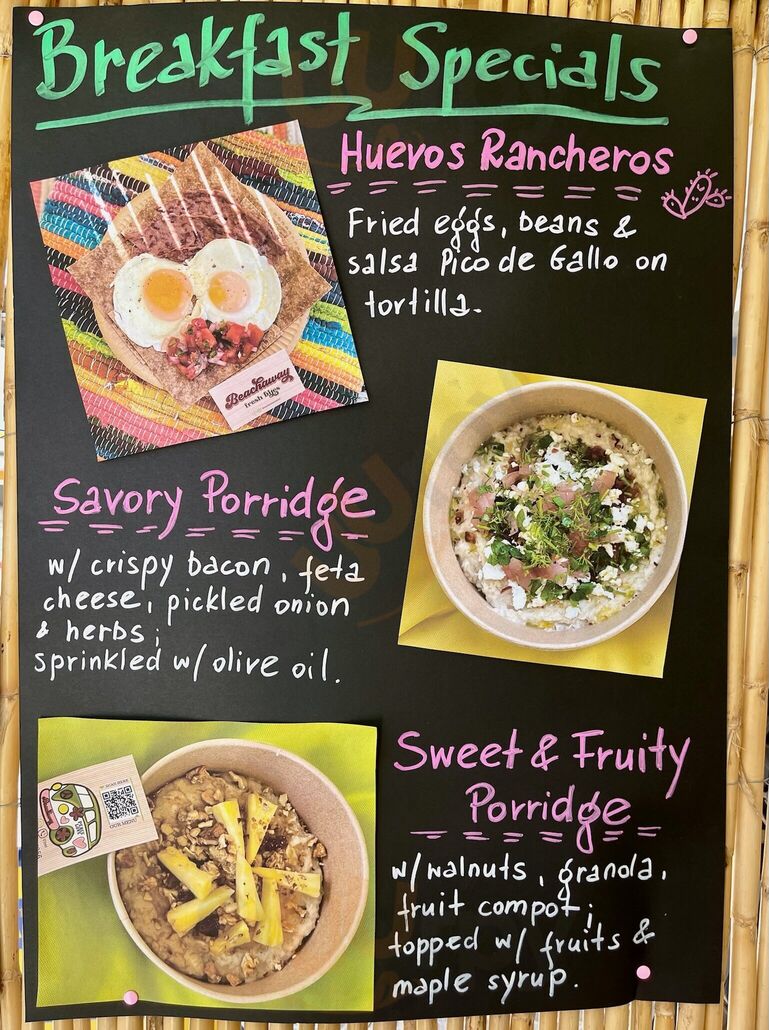 Breakfast Specials
Huevos Rancheros
Fried eggs, beans &
salsa Pico de Gallo on
tortilla.
Beachaway
fresh bites
Savory Porridge
w/ crispy bacon, feta
cheese, pickled onion
& herbs;
sprinkled w/ olive oil.
Sweet & Fruity
Porridge
w/ walnuts, granola,
fruit compot;
topped w/ fruits &
maple syrup.
SCAN HERE